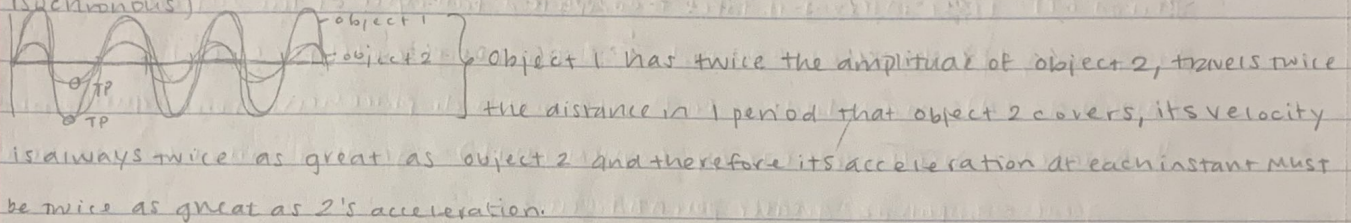 isochronous)
object 1
object 2 } Object 1 has twice the amplitude of object 2, travels twice
TP
the distance in 1 period that object 2 covers, its velocity
TP
is always twice as great as object 2 and therefore its acceleration at each instant must
be twice as great as 2's acceleration.